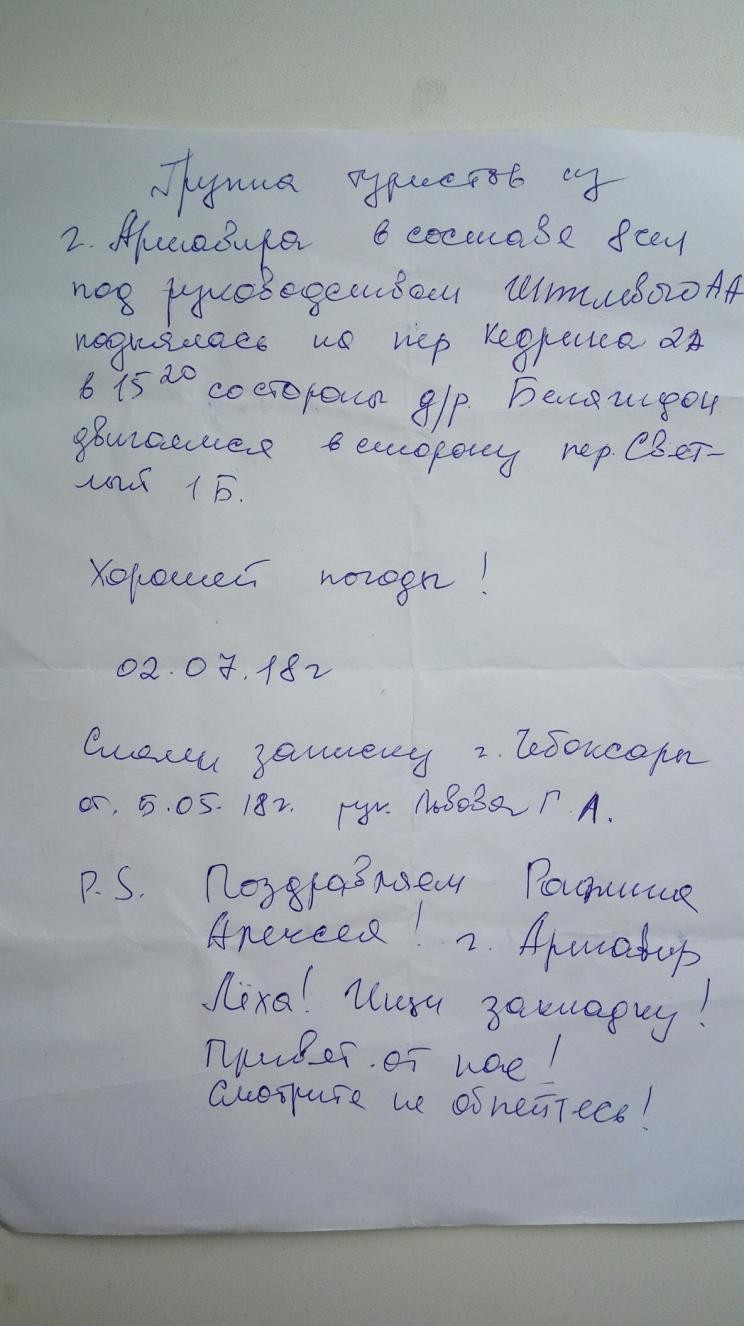 Группа туристов из
г. Армавира в составе 8 чел
под руководством АА
поднялась на пер Кедрина 2А
в 15 20 со стороны д/р. Белягидон
двигаемся в сторону пер. Свет-
лый 1Б.
Хорошей погоды!
02.07.18г
Сняли записку г. Чебоксары
от. 5.05.18г. рук. Львова Г.А.
P.S. Поздравляем
Алексея! г. Армавир
Лёха! Ищи закладку!
Привет от нас!
Смотрите не обпейтесь!